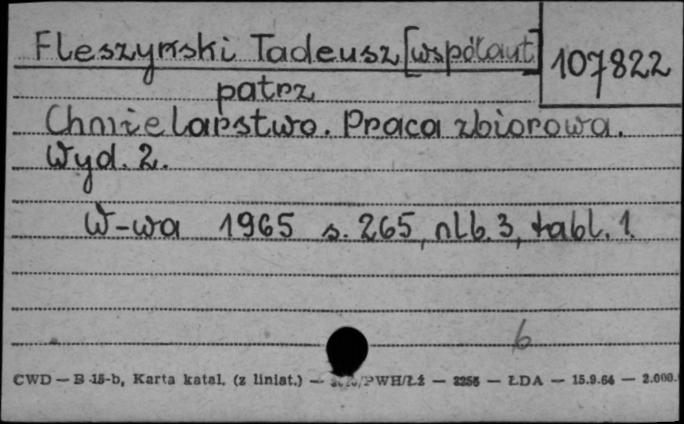 Fleszyński Tadeusz [współaut]
107822
patrz
Chmielarstwo. Praca zbiorowa.
Wyd. 2.
W-wa 1965 s. 265, nlb. 3, tabl. 1.
6
CWD — B 15-b, Karta katal. (z liniat.) — PWH/Łż — 2255 — ŁDA — 15.9.64 — 2.000.